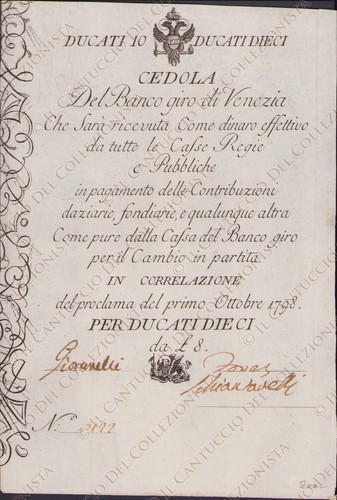 DUCATI 10 DUCATI DIECI
CEDOLA
Del Banco giro di Venezia
Che Sarà ricevuta Come dinaro effettivo
da tutte le Casse Regie
e Pubbliche
in pagamento delle Contribuzioni
daziarie, fondiarie, e qualunque altra
Come pure dalla Cassa del Banco giro
per il Cambio in partita
IN CORRELAZIONE
del proclama del primo Ottobre 1798.
PER DUCATI DIECI
da £ 8.
Giovanelli
N.
IL CANTUCCIO DEL COLLEZIONISTA